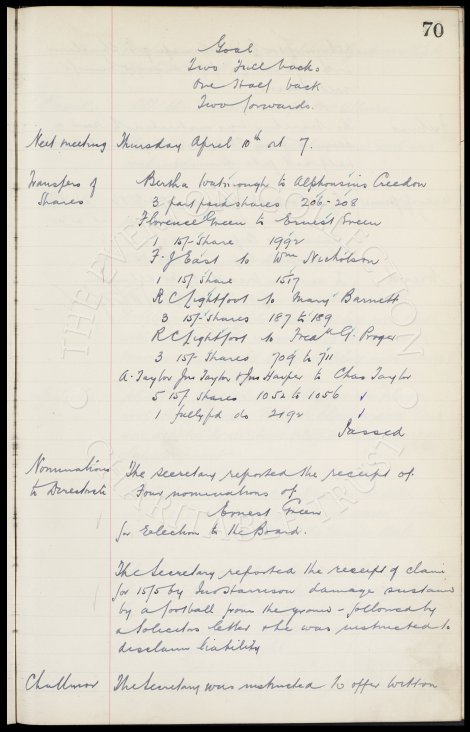 70
Goal
Two Full backs
One Half back
Two forwards.
Next meeting Thursday April 10th at 7.
Transfers of Shares
Bertha Watmough to Alphonsius Creedon
3 part paid shares 206-208
Florence Green to Ernest Green
1 15/- Share 1992
F. J East to Wm Nicholson
1 15/ Share 1517
R C Lightfoot to Mary Barnett
3 15/- Shares 187 to 189
R C Lightfoot to Fredk G. Proger
3 15/- Shares 709 to 711
A. Taylor Jno Taylor & Jno Harper to Chas Taylor
5 15/ Shares 1052 to 1056
1 fully pd do 2192
Passed
Nominations to Directorate
The Secretary reported the receipt of
Four nominations of
Ernest Green
for Election to the Board.
The Secretary reported the receipt of claim
for 15/5 by Jno Harrison damage sustained
by a football from the ground - followed by
a Solicitors letter & he was instructed to
disclaim liability
The Secretary was instructed to offer Witton
THE EVERTON COLLECTION
CHARITABLE TRUST